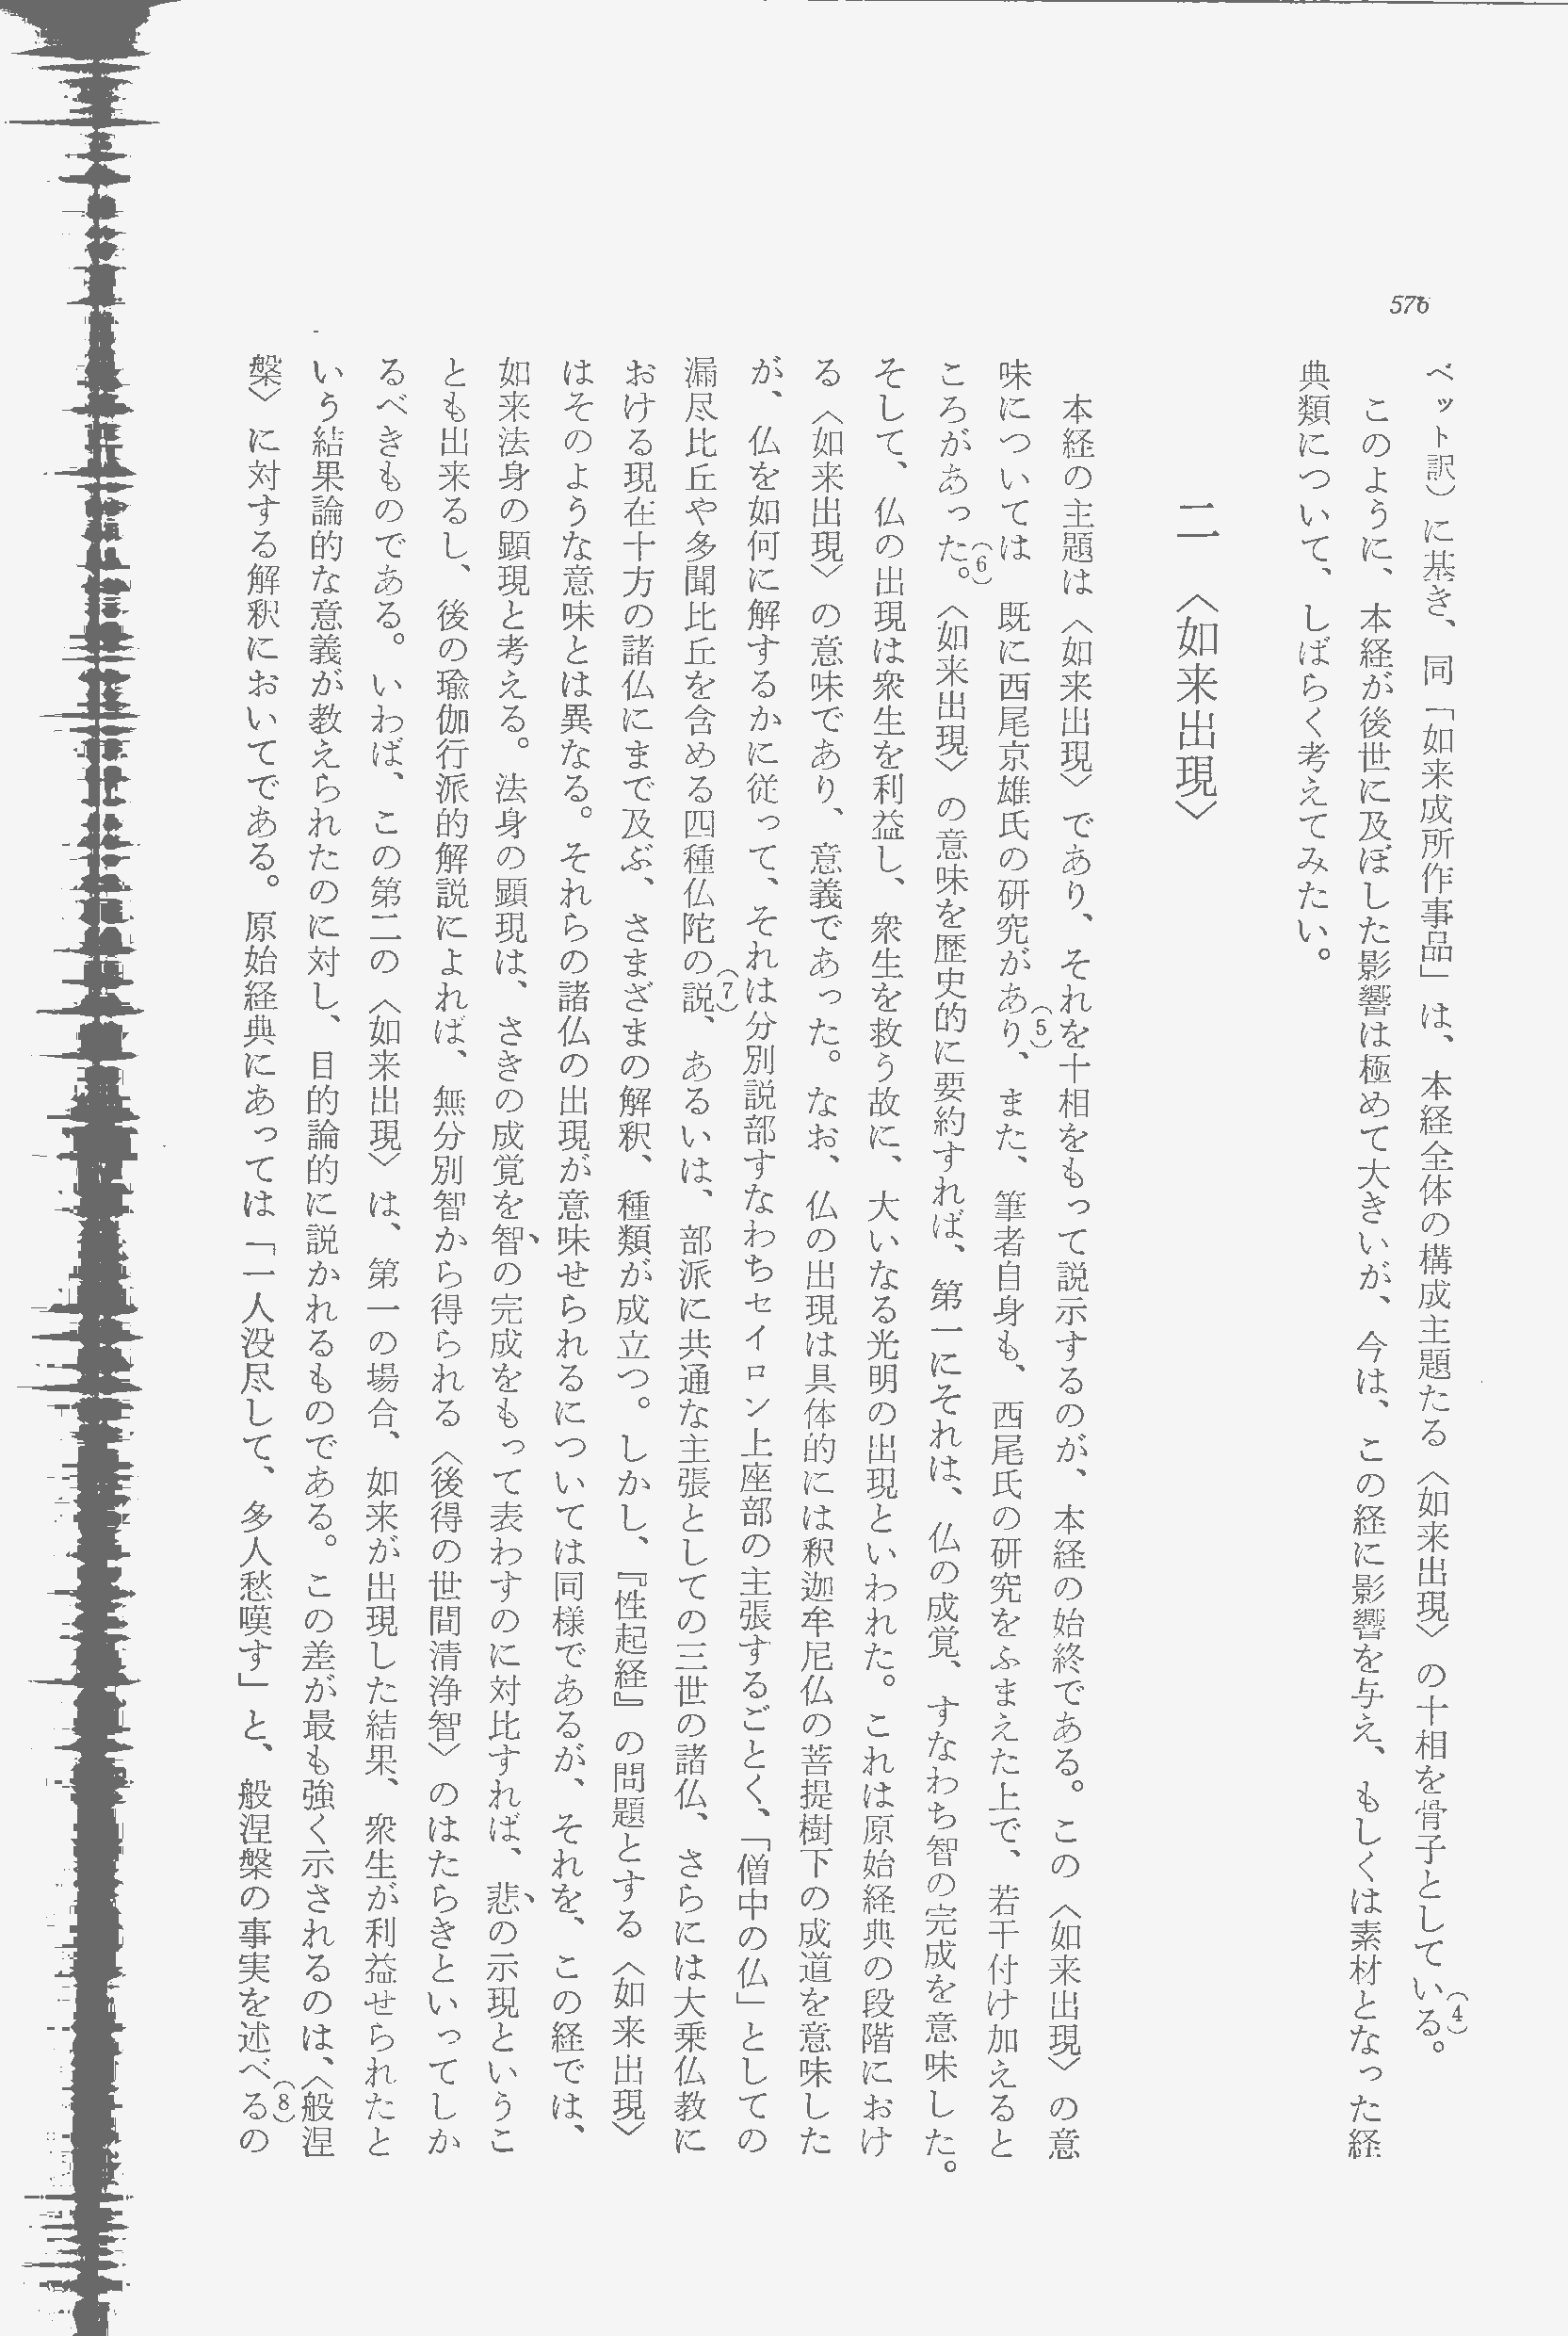 576
ベット訳)に基き、同「如来成所作事品」は、本経全体の構成主題たる〈如来出現〉の十相を骨子としている。(4)
このように、本経が後世に及ぼした影響は極めて大きいが、今は、この経に影響を与え、もしくは素材となった経
典類について、しばらく考えてみたい。
二 〈如来出現〉
本経の主題は〈如来出現〉であり、それを十相をもって説示するのが、本経の始終である。この〈如来出現〉の意
味については既に西尾京雄氏の研究があり、(5)また、筆者自身も、西尾氏の研究をふまえた上で、若干付け加えると
ころがあった。(6)〈如来出現〉の意味を歴史的に要約すれば、第一にそれは、仏の成覚、すなわち智の完成を意味した。
そして、仏の出現は衆生を利益し、衆生を救う故に、大いなる光明の出現といわれた。これは原始経典の段階におけ
る〈如来出現〉の意味であり、意義であった。なお、仏の出現は具体的には釈迦牟尼仏の菩提樹下の成道を意味した
が、仏を如何に解するかに従って、それは分別説部すなわちセイロン上座部の主張するごとく、「僧中の仏」としての
漏尽比丘や多聞比丘を含める四種仏陀の説、(7)あるいは、部派に共通な主張としての三世の諸仏、さらには大乗仏教に
おける現在十方の諸仏にまで及ぶ、さまざまの解釈、種類が成立つ。しかし、『性起経』の問題とする〈如来出現〉
はそのような意味とは異なる。それらの諸仏の出現が意味せられるについては同様であるが、それを、この経では、
如来法身の顕現と考える。法身の顕現は、さきの成覚を智の完成をもって表わすのに対比すれば、悲の示現というこ
とも出来るし、後の瑜伽行派的解説によれば、無分別智から得られる〈後得の世間清浄智〉のはたらきといってしか
るべきものである。いわば、この第二の〈如来出現〉は、第一の場合、如来が出現した結果、衆生が利益せられたと
いう結果論的な意義が教えられたのに対し、目的論的に説かれるものである。この差が最も強く示されるのは、〈般涅
槃〉に対する解釈においてである。原始経典にあっては「一人没尽して、多人愁嘆す」と、般涅槃の事実を述べる(8)の